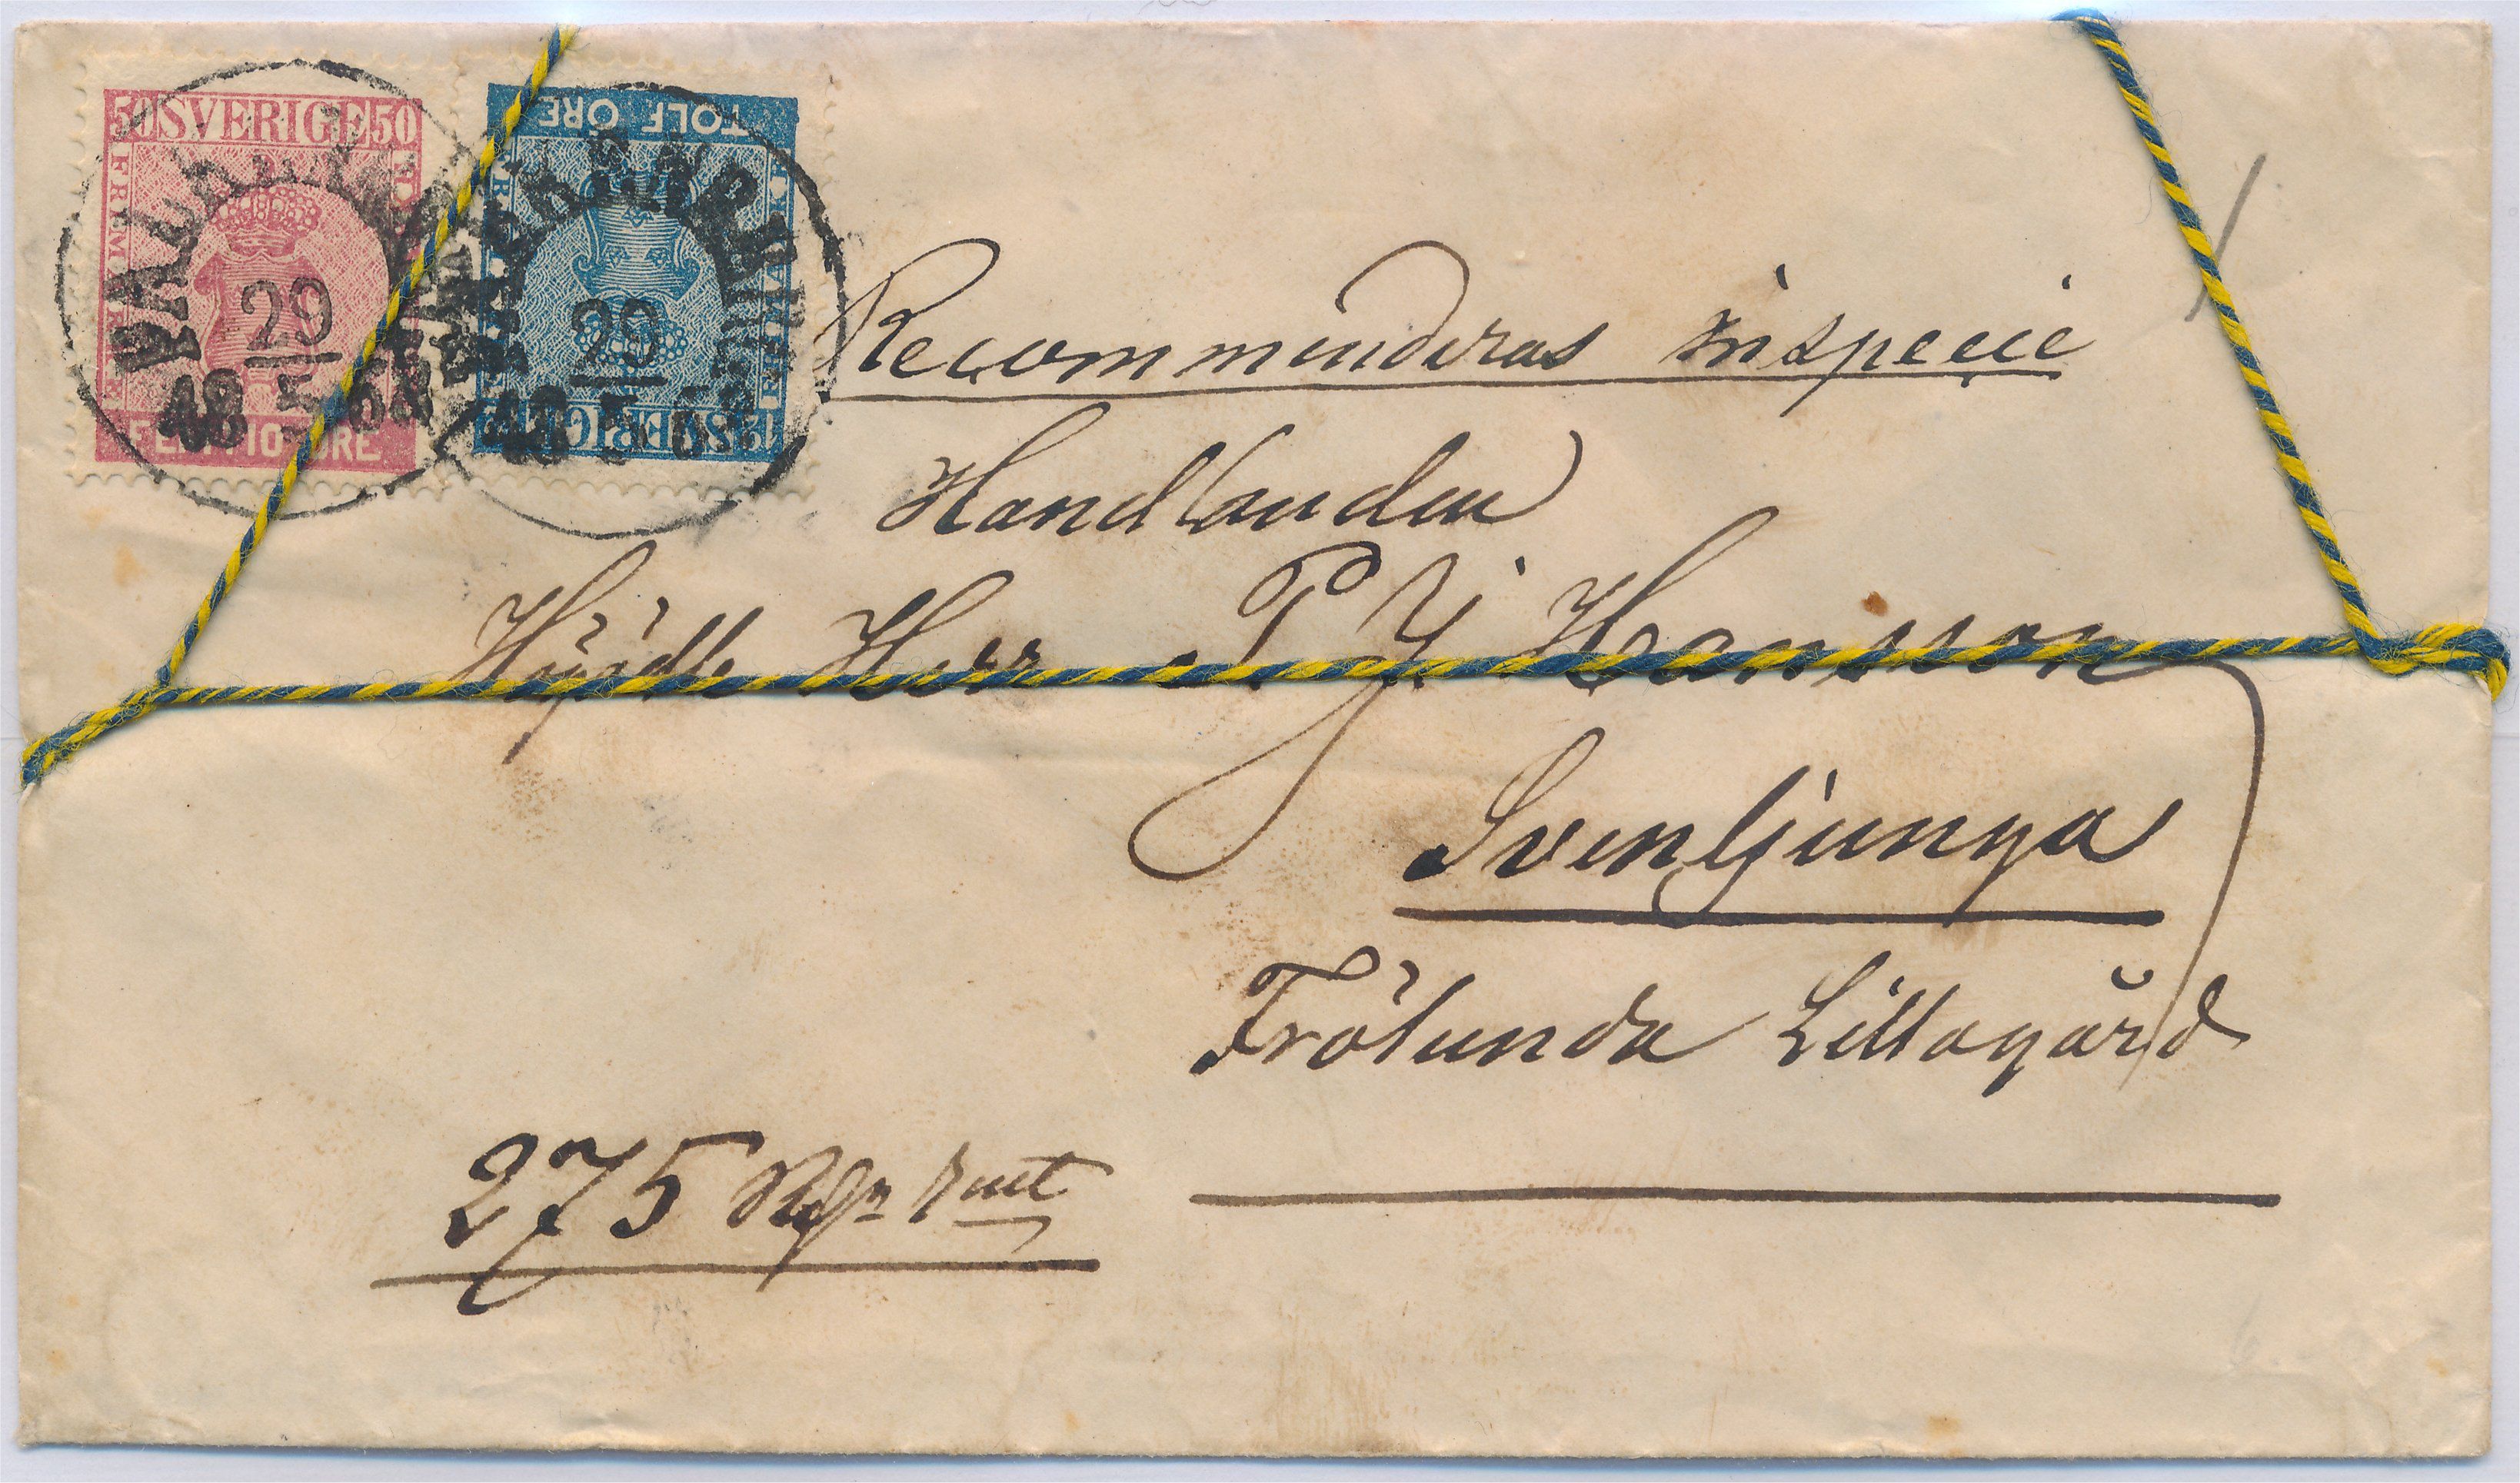 50 SVERIGE 50
FRIMÄRKE
FEMTIO ÖRE
TOLF ÖRE
FRIMÄRKE
12 SVERIGE 12
29
48 5 68
29
48 5
Recommenderas Inspecie
Handlanden
Herr P J Hansson
Svenljunga
Frölunda Lillagård
275 Rdr Rmt